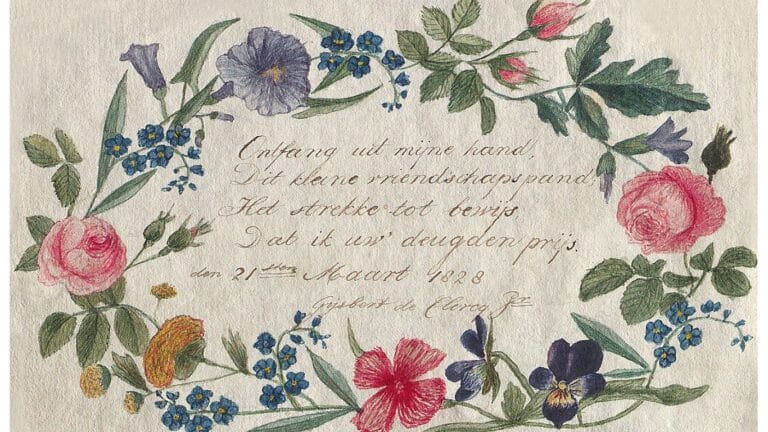 Ontfang uit mijne hand,
Dit kleine vriendschapspand,
Het strekke tot bewijs,
Dat ik uw' deugden prijs.
den 21sten Maart 1828
Gijsbert de Clercq Pzn